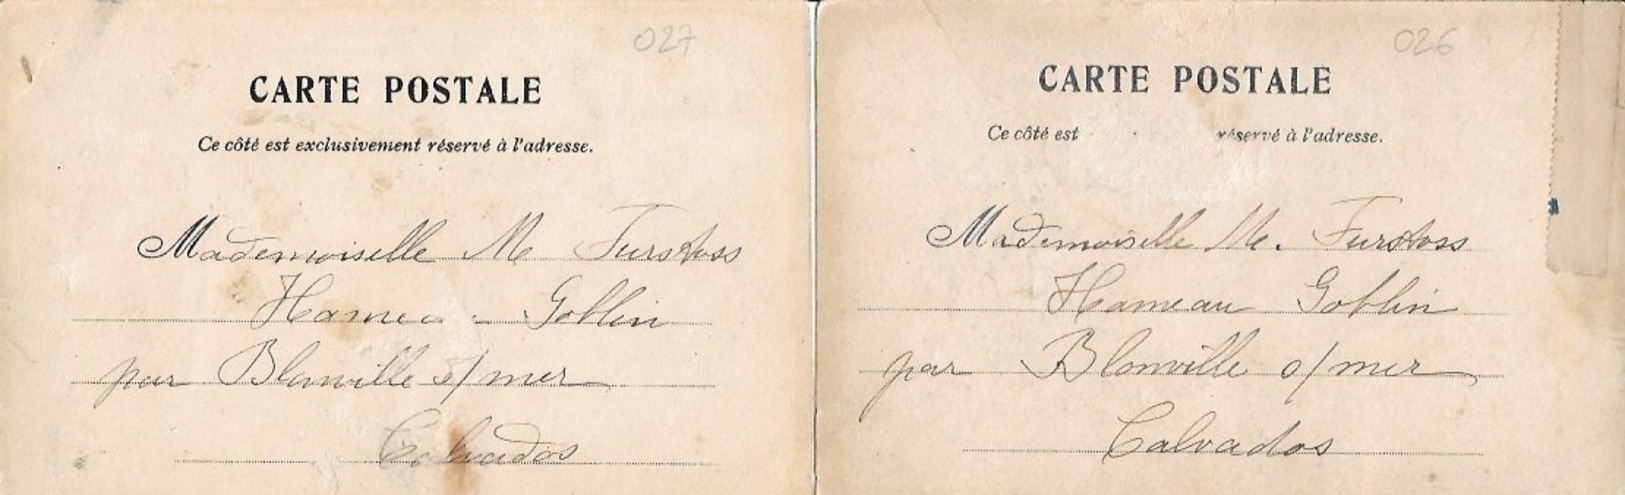 027
CARTE POSTALE
Ce côté est exclusivement réservé à l'adresse.
Mademoiselle M Furstoss
Hameau Goblin
par Blonville s/mer
Calvados
026
CARTE POSTALE
Ce côté est réservé à l'adresse.
Mademoiselle M. Furstoss
Hameau Goblin
par Blonville s/mer
Calvados